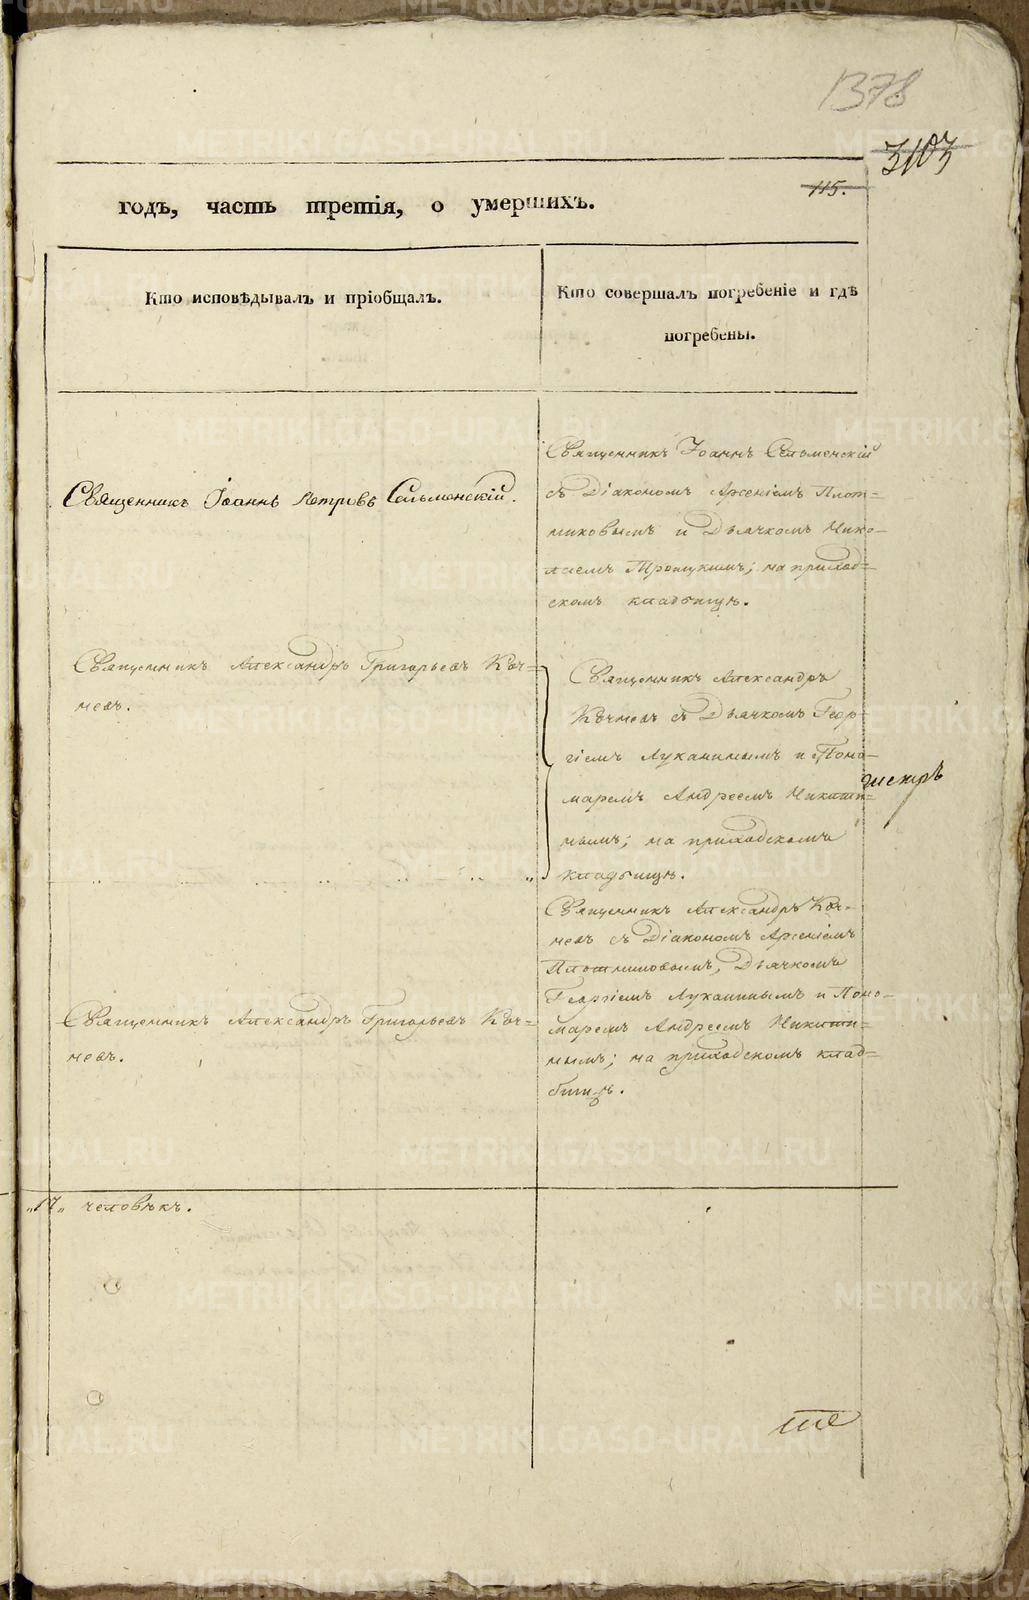 1378
3103
115.
годъ, часть третія, о умершихъ.
Кто исповѣдывалъ и пріобщалъ.
Кто совершалъ погребеніе и гдѣ
погребены.
Священникъ Іоаннъ Петровъ Сельменскій.
Священникъ Іоаннъ Сельменскій
съ Діакономъ Арсеніемъ Плот=
никовымъ и Дьячкомъ Нико=
лаемъ Троицкимъ; на приход=
скомъ кладбищѣ.
Священникъ Александръ Григорьевъ Коч=
невъ.
Священникъ Александръ
Кочневъ съ Дьячкомъ Геор=
гіемъ Луканинымъ и Поно=
маремъ Андреемъ Никити=
нымъ; на приходскомъ
кладбищѣ.
Священникъ Александръ Коч=
невъ съ Діакономъ Арсеніемъ
Плотниковымъ, Дьячкомъ
Георгіемъ Луканинымъ и Поно=
маремъ Андреемъ Никити=
нымъ; на приходскомъ клад=
бищѣ.
Священникъ Александръ Григорьевъ Коч=
невъ.
„17„ человѣкъ.
METRIKI.GASO-URAL.RU